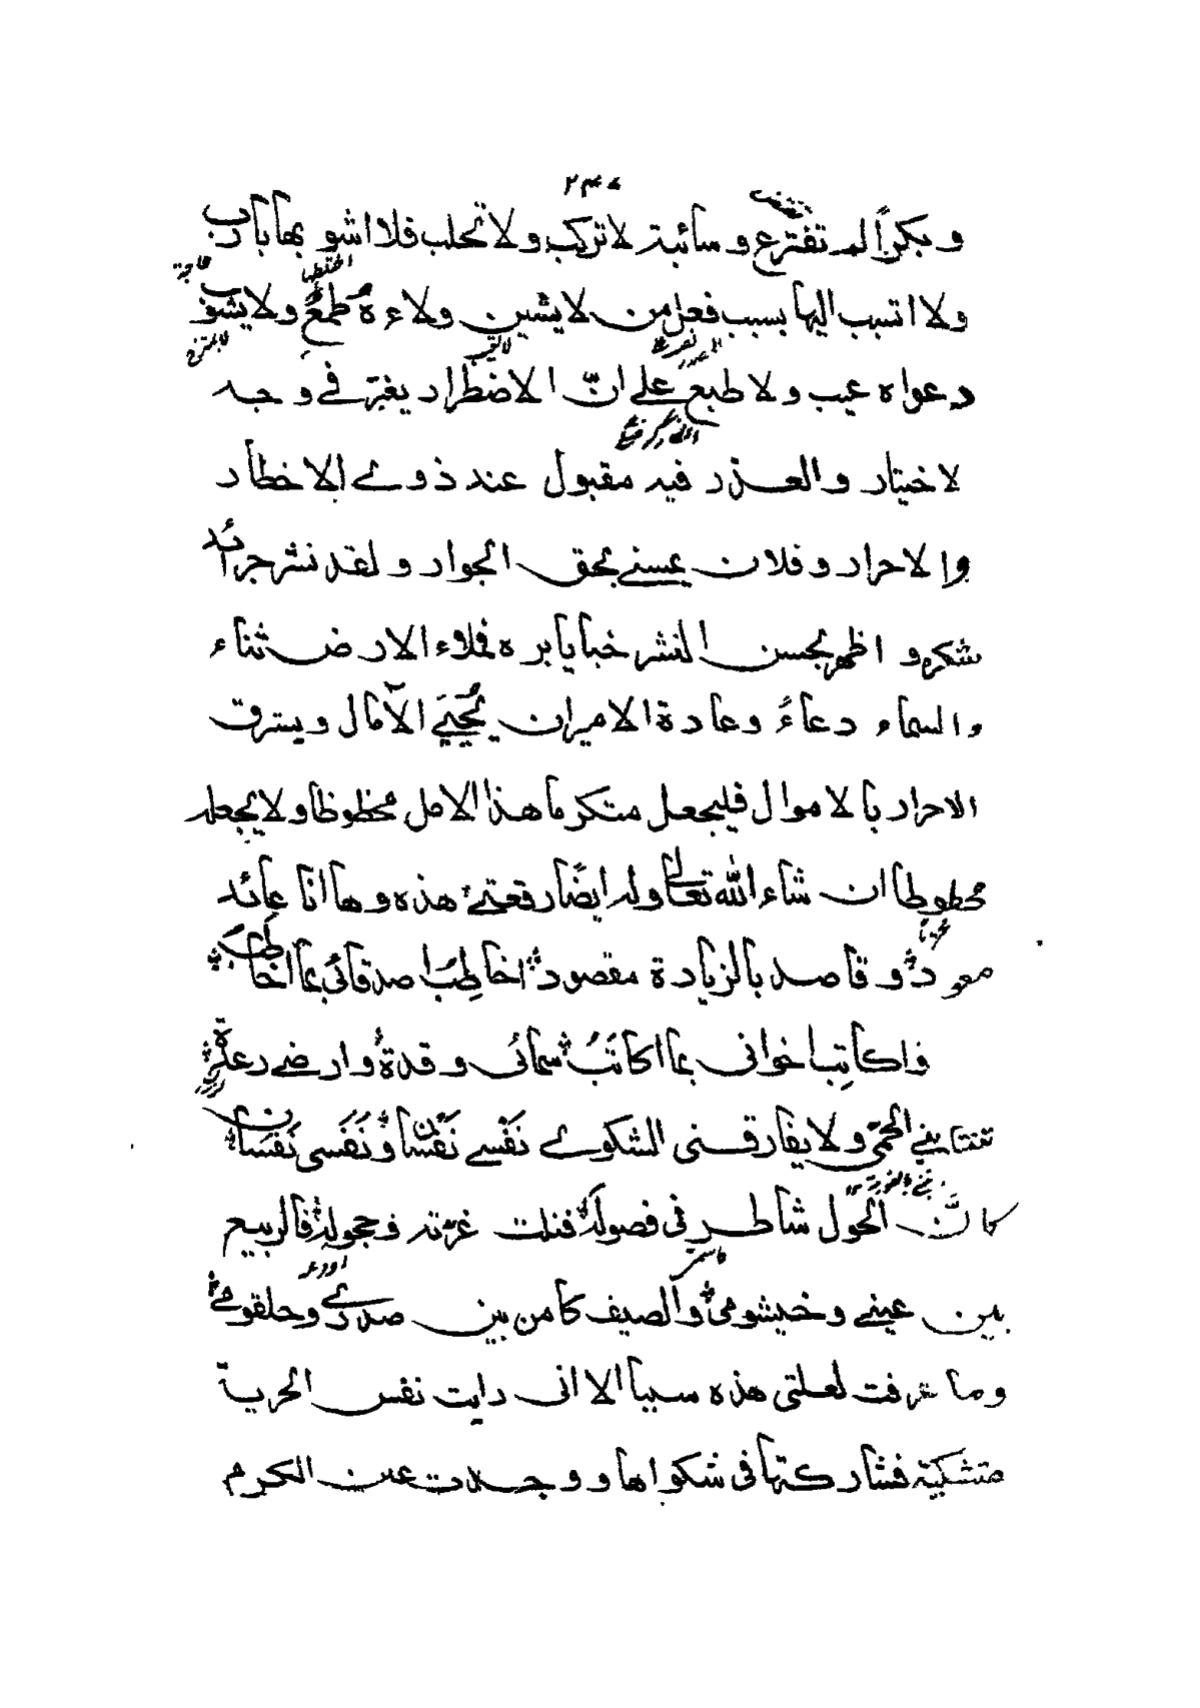 وبكراً لم تفترع وسائبة لا تركب ولا تحلب فلا اشو بها باب
ولا اتسبب اليها بسبب فعل من لا يشين ولاءه طمع ولا يشو
دعواه عيب ولا طبع على انّ الاضطرار يغبّر في وجه
لاختيار والعذر فيه مقبول عند ذوي الاخطار
والاحرار وفلان يمسني بحق الجوار ولقد نشر جرائد
شكره و اظهر بحسن النشر خبايا بره فملاء الارض ثناء
والسماء دعاءً وعادة الامير ان يُحيي الآمال ويسترق
الاحرار بالاموال فليجعل متكرما هذا الامل محظوظا ولا يجعله
محطوطا ان شاء الله تعالى وله ايضًا رقعتي هذه وها انا عائد
معود وقاصد بالزيادة مقصود اخاطب اصدقائي بما اخاطب
فاكاتب اخواني بما اكاتب سمائي وقدة وارضي رعدة
تنتابني الحمّى ولا يفارقني الشكوى نَفْسي نَفْسان ونَفَسي نَفَسان
كانّ الحول شاطر في فصوله فنلت غرّته وحجوله فالربيع
بين عيني وخيشومي والصيف كامن بين صدري وحلقومي
وما عرفت لعلتي هذه سببا الا اني رايت نفس الحرية
متشكية فشاركتها في شكواها ووجدت عين الكرم